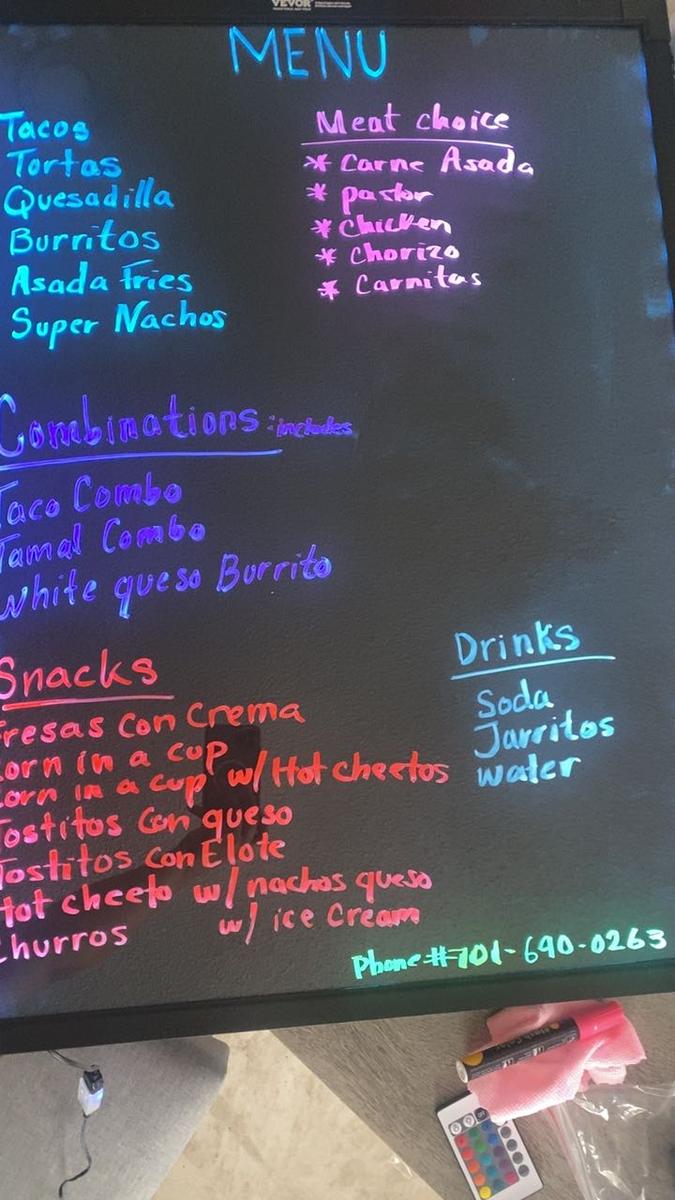 VEVOR
MENU
Tacos
Tortas
Quesadilla
Burritos
Asada Fries
Super Nachos
Meat choice
* Carne Asada
* pastor
* Chicken
* Chorizo
* Carnitas
Combinations : includes
Taco Combo
Tamal Combo
White queso Burrito
Snacks
Fresas con Crema
Corn in a cup
Corn in a cup w/ Hot cheetos
Tostitos con queso
Tostitos con Elote
Hot cheeto w/ nachos queso
Churros w/ ice Cream
Drinks
Soda
Jarritos
water
Phone# 701-690-0263